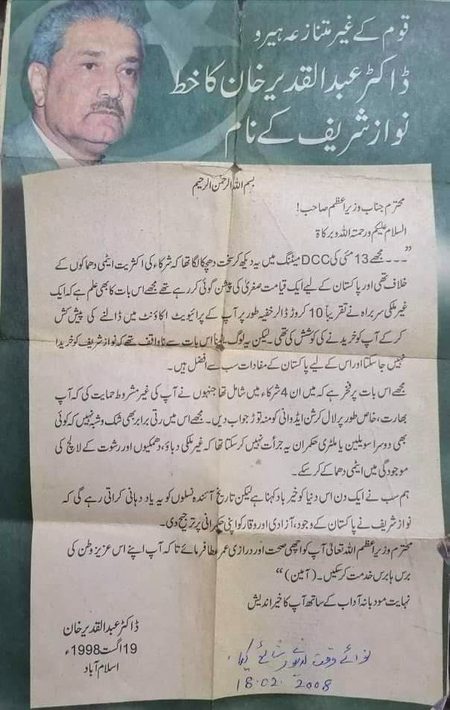 قوم کے غیر متنازعہ ہیرو
ڈاکٹر عبدالقدیر خان کا خط
نواز شریف کے نام
بسم اللہ الرحمٰن الرحیم
محترم جناب وزیراعظم صاحب!
السلام علیکم ورحمتہ اللہ وبرکاۃ
”۔۔۔ مجھے 13 مئی کی DCC میٹنگ میں یہ دیکھ کر سخت دھچکا لگا تھا کہ شرکاء کی اکثریت ایٹمی دھماکوں کے
خلاف تھی اور پاکستان کے لیے ایک قیامت صغریٰ کی پیشن گوئی کر رہے تھے مجھے اس بات کا بھی علم ہے کہ ایک
غیر ملکی سربراہ نے تقریباً 10 کروڑ ڈالر خفیہ طور پر آپ کے پرائیویٹ اکاؤنٹ میں ڈالنے کی پیش کش
کر کے آپ کو خریدنے کی کوشش کی تھی۔ لیکن یہ لوگ اس بات سے ناواقف تھے کہ نواز شریف کو خریدا
نہیں جا سکتا اور اس کے لیے پاکستان کے مفادات سب سے افضل ہیں۔
مجھے اس بات پر فخر ہے کہ میں ان 4 شرکاء میں شامل تھا جنہوں نے آپ کی غیر مشروط حمایت کی کہ آپ
بھارت، خاص طور پر لال کرشن ایڈوانی کو منہ توڑ جواب دیں۔ مجھے اس میں رتی برابر بھی شک وشبہ نہیں کہ کوئی
بھی دوسرا سویلین یا ملٹری حکمران یہ جرأت نہیں کر سکتا تھا کہ غیر ملکی دباؤ، دھمکیوں اور رشوت کے لالچ کی
موجودگی میں ایٹمی دھماکے کر سکے۔
ہم سب نے ایک دن اس دنیا کو خیر باد کہنا ہے لیکن تاریخ آئندہ نسلوں کو یہ یاد دہانی کراتی رہے گی کہ
نواز شریف نے پاکستان کے وجود، آزادی اور وقار کو اپنی حکمرانی پر ترجیح دی۔
محترم وزیراعظم اللہ تعالیٰ آپ کو اچھی صحت اور درازی عمر عطا فرمائے تا کہ آپ اپنے اس عزیز وطن کی
برس ہا برس خدمت کر سکیں۔ (آمین)“
نہایت مودبانہ آداب کے ساتھ آپ کا خیر اندیش
ڈاکٹر عبدالقدیر خان
19 اگست 1998ء
اسلام آباد
نوائے وقت شائع کیا
18.02.2008